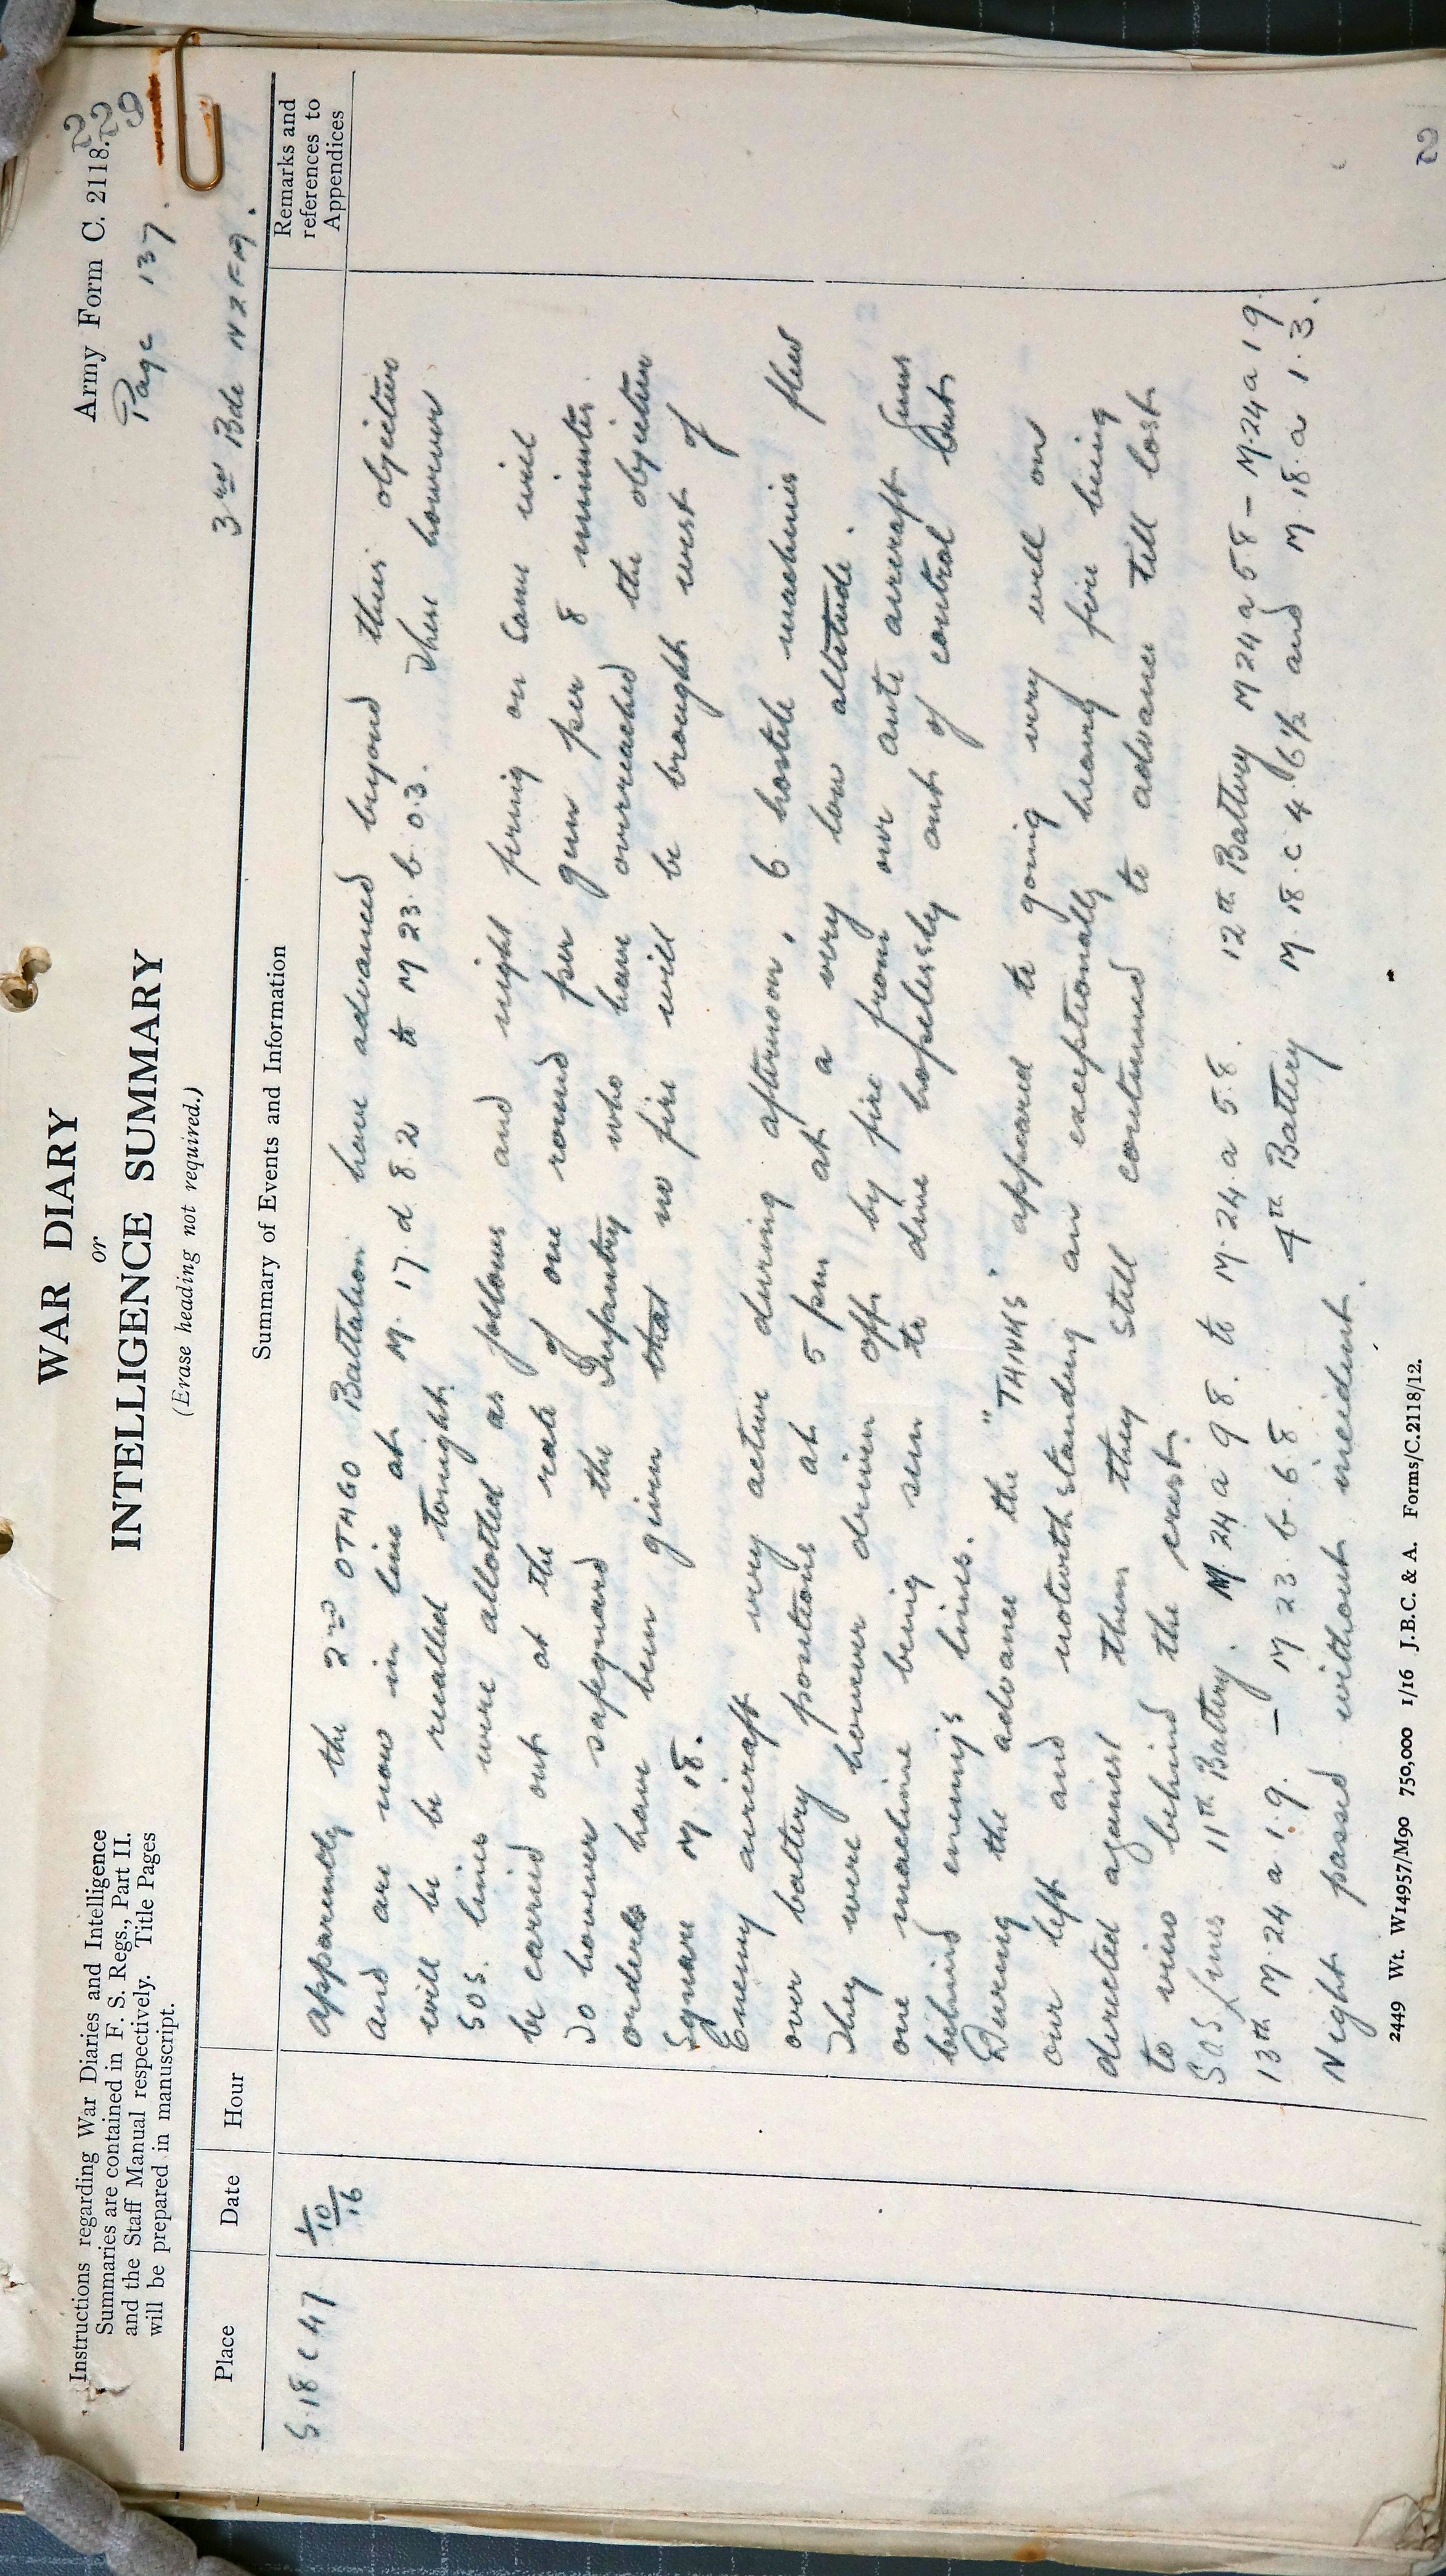 WAR DIARY
or
INTELLIGENCE SUMMARY
(Erase heading not required.)
Instructions regarding War Diaries and Intelligence
Summaries are contained in F. S. Regs., Part II.
and the Staff Manual respectively. Title Pages
will be prepared in manuscript.
Army Form C. 2118.
229
Page 137.
3rd Bde NZFA.
Place
Date
Hour
Summary of Events and Information
Remarks and references to Appendices
S.18 C 47
1/10/16
apparently the 2nd OTAGO Battalion have advanced beyond their objective
and are now in line at M. 17. d 8.2 to M 23. b 0.3. These however
will be recalled tonight.
SOS. lines were allotted as follows and night firing on same will
be carried out at the rate of one round per gun per 8 minutes.
To however safeguard the Infantry who have overreached the objective
orders have been given that no fire will be brought west of
Square M. 18.
Enemy aircraft very active during afternoon. 6 hostile machines flew
over battery positions at 5 pm at a very low altitude.
They were however driven off by fire from our anti aircraft guns
one machine being seen to dive hopelessly out of control but
behind enemy's lines.
During the advance the "TANKS" appeared to going very well on
our left and notwithstanding an exceptionally heavy fire being
directed against them they still continued to advance till lost
to view behind the crest.
SOS Lines 11th Battery. M. 24 a 9 8. to M. 24. a 5.8. 12th Battery M 24 a 5 8 - M. 24 a 1 9.
13th M. 24 a 1.9. - M 23. b. 6.8. 4th Battery M. 18. c 4. 6½ and M. 18. a 1. 3.
Night passed without incident.
2449 Wt. W14957/M90 750,000 1/16 J.B.C. & A. Forms/C.2118/12.